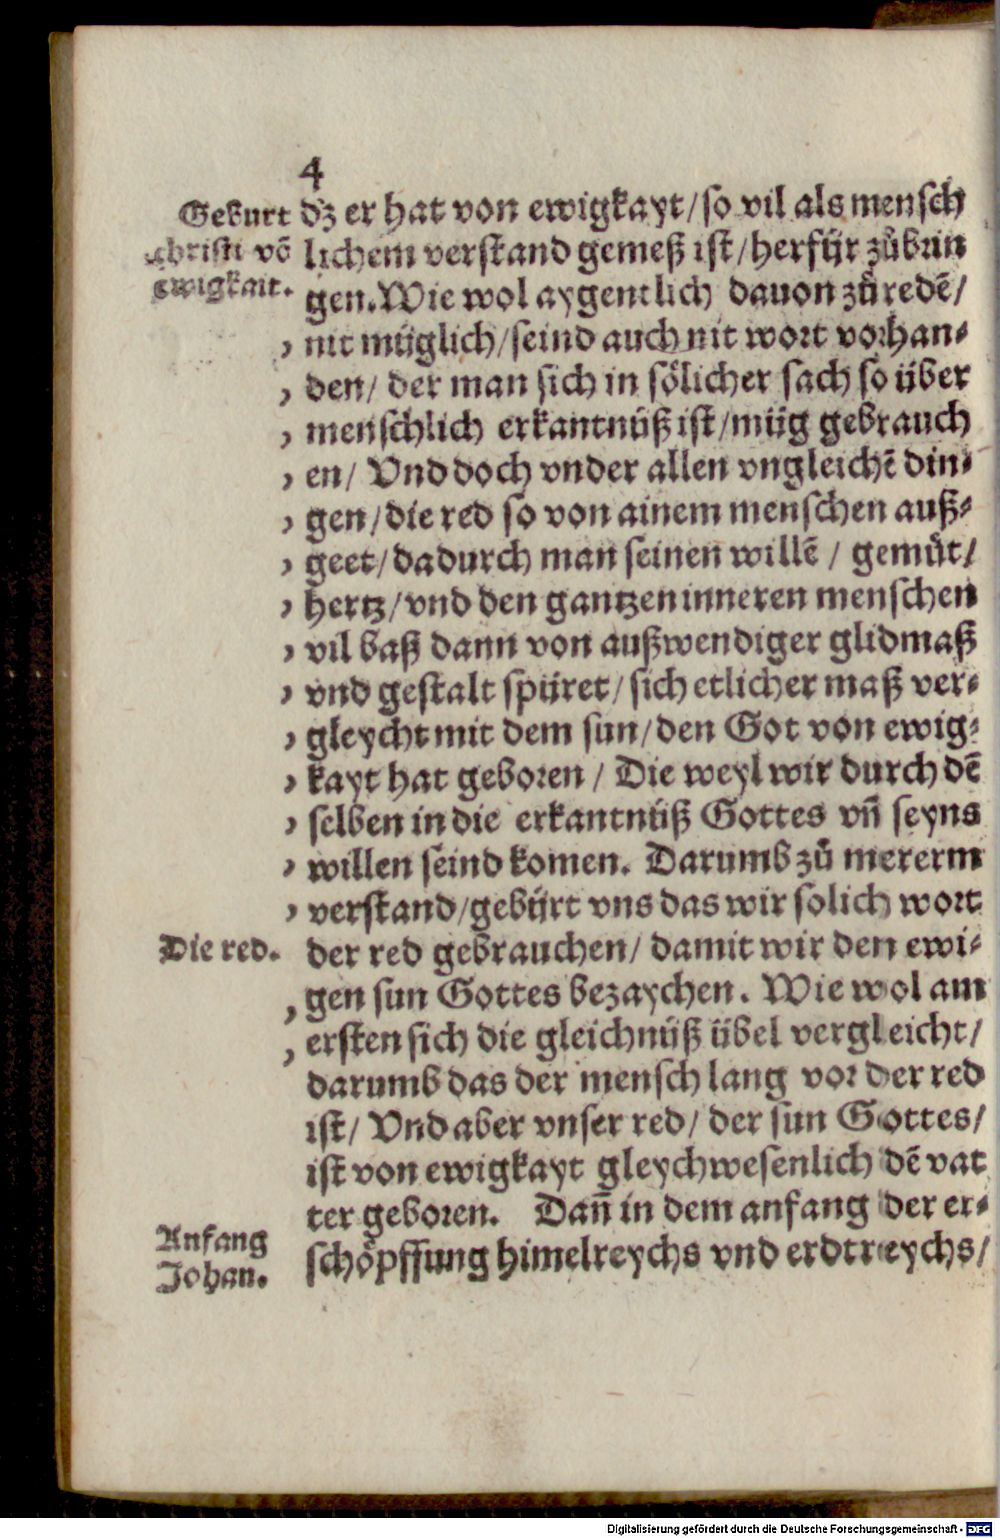 4
Geburt
christi võ
ewigkait.
dz er hat von ewigkayt/so vil als mensch
lichem verstand gemeß ist/herfür zůbrin
gen. Wie wol aygentlich dauon zů redẽ/
, nit müglich/seind auch nit wort vorhan⸗
, den/ der man sich in sölicher sach so über
, menschlich erkantnüß ist/müg gebrauch
, en/ Vnd doch vnder allen vngleichẽ din⸗
, gen/die red so von ainem menschen auß⸗
, geet/dadurch man seinen willẽ / gemüt/
, hertz/vnd den gantzen inneren menschen
, vil baß dann von außwendiger glidmaß
, vnd gestalt spüret/sich etlicher maß ver⸗
, gleycht mit dem sun/den Got von ewig⸗
, kayt hat geboren / Die weyl wir durch dẽ
, selben in die erkantnüß Gottes vñ seyns
, willen seind komen. Darumb zů mererm
, verstand/gebürt vns das wir solich wort
Die red.
der red gebrauchen/ damit wir den ewi⸗
, gen sun Gottes bezaychen. Wie wol am
, ersten sich die gleichnüß übel vergleicht/
darumb das der mensch lang vor der red
ist/ Vnd aber vnser red/ der sun Gottes/
ist von ewigkayt gleychwesenlich dẽ vat
ter geboren. Dañ in dem anfang der er⸗
Anfang
Johan.
schöpffung himelreychs vnd erdtreychs/
Digitalisierung gefördert durch die Deutsche Forschungsgemeinschaft - DFG